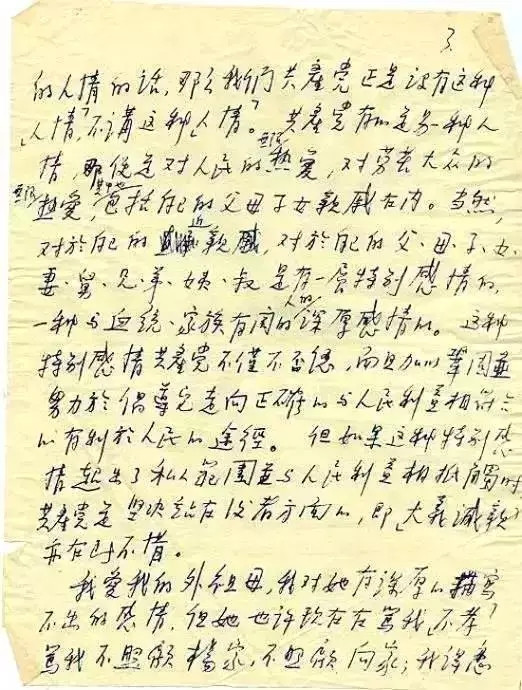 3.
的人情的话，那么我们共產党正是没有这种
「人情」，不講这种「人情」。共產党有的是另一种人
情，那便是对人民的无限热爱，对劳苦大众的
无限热爱，其中也包括自己的父母子女親戚在内。当然，
对於自己的近親，对於自己的父、母、子、女、
妻、舅、兄、弟、姨、叔是有一層特别感情的，
一种与血统、家族有关的人的深厚感情的。这种
特别感情共產党不僅不否認，而且加以鞏固並
努力於倡導它走向正確的与人民利益相符合
的有利於人民的途徑。但如果这种特别感
情超出了私人範圍並与人民利益相抵觸时
共產党是坚决站在後者方面的，即「大義滅親」
亦在所不惜。
我愛我的外祖母，我对她有深厚的描寫
不出的感情，但她也许现在在罵我「不孝」，
罵我不照顧楊家，不照顧向家；我得忍